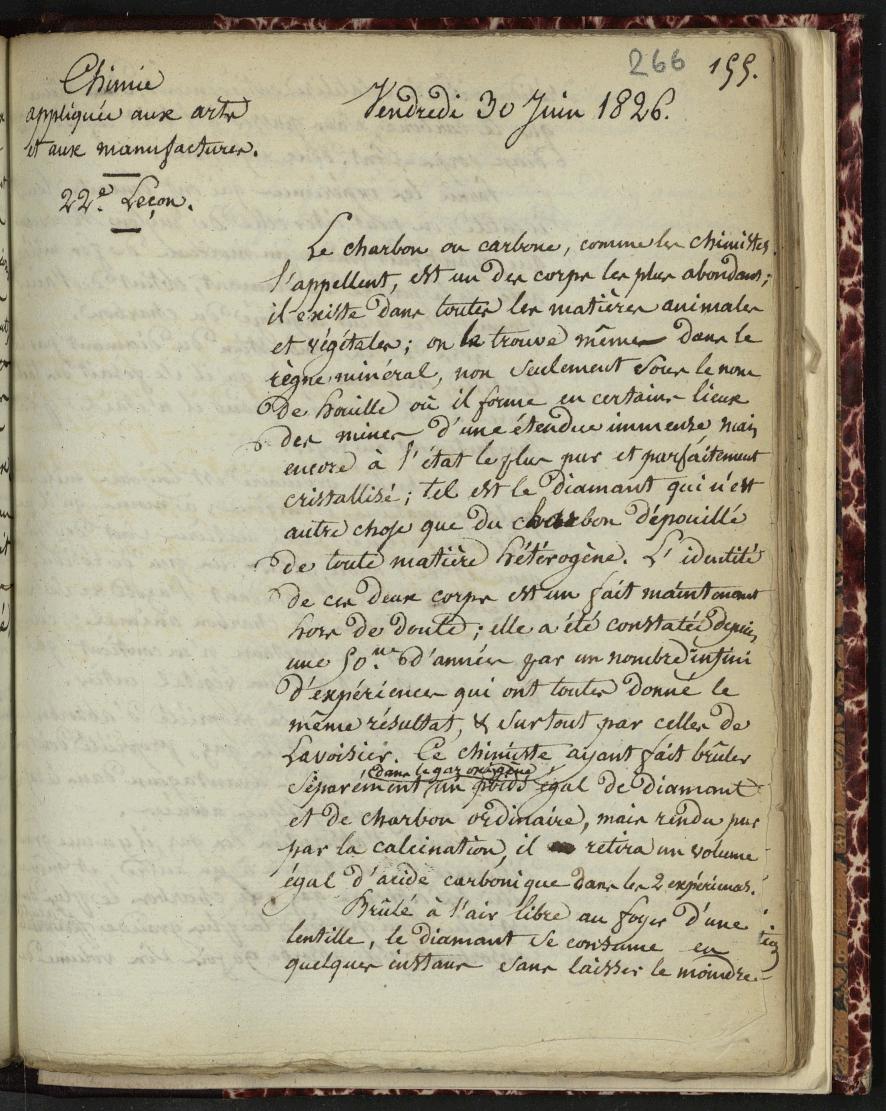 266 155.
Chimie
appliquée aux arts
et aux manufactures.
22e. Leçon.
Vendredi 30 Juin 1826.
Le charbon ou carbone, comme les chimistes
l'appellent, est un des corps les plus abondans;
il existe dans toutes les matières animales
et végétales; on le trouve même dans le
règne minéral, non seulement sous le nom
de houille où il forme en certains lieux
des mines d'une étendue immense mais
encore à l'état le plus pur et parfaitement
cristallisé; tel est le diamant qui n'est
autre chose que du charbon dépouillé
de toute matière hétérogène. L'identité
de ces deux corps est un fait maintenant
hors de doute; elle a été constatée depuis
une 50.ne d'années par un nombre infini
d'expériences qui ont toutes donné le
même résultat, & surtout par celles de
Lavoisier. Ce chimiste ayant fait brûler
dans le gaz oxigène
séparément un poids égal de diamant
et de charbon ordinaire, mais rendu pur
par la calcination, il retira un volume
égal d'acide carbonique dans les 2 expériences.
Brûlé à l'air libre au foyer d'une
lentille, le diamant se consume en
quelques instans sans laisser le moindre